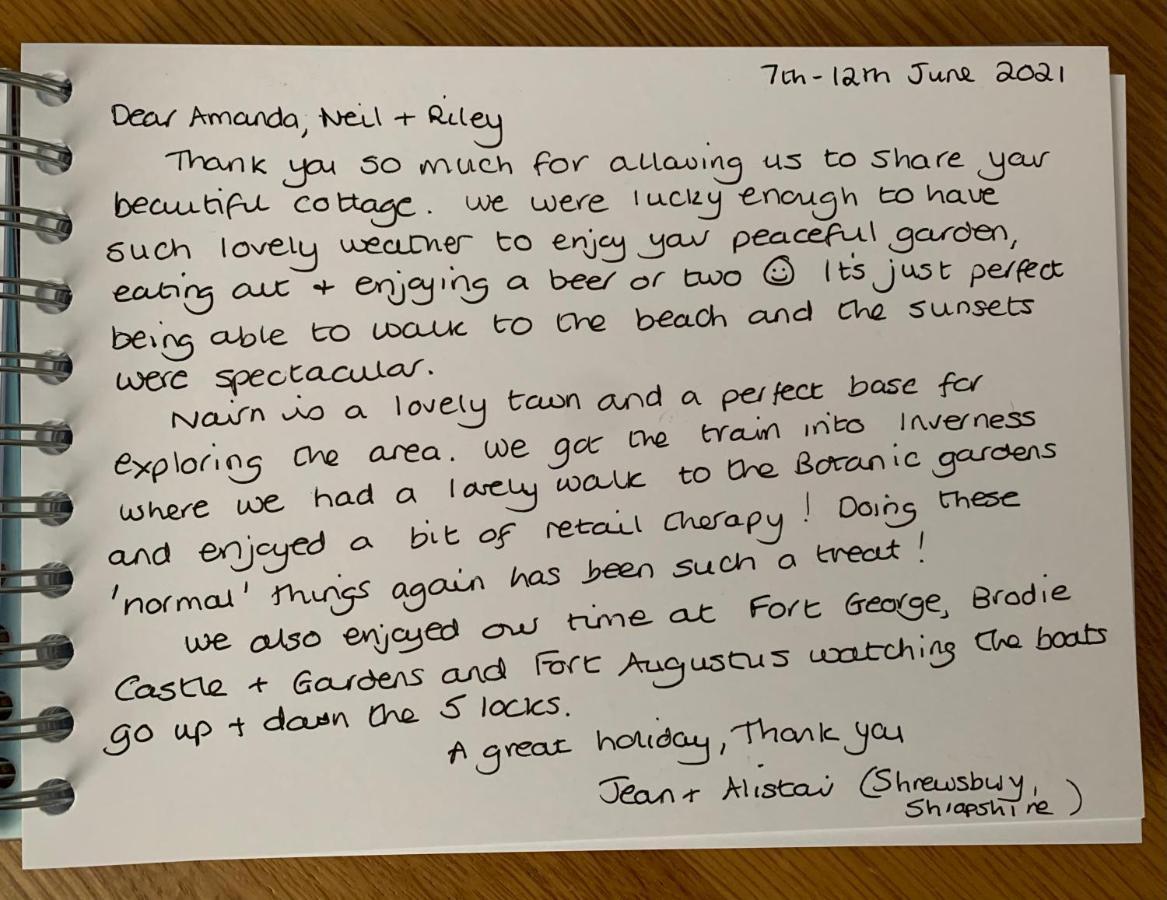 7th-12th June 2021
Dear Amanda, Neil + Riley
Thank you so much for allowing us to share your
beautiful cottage. We were lucky enough to have
such lovely weather to enjoy your peaceful garden,
eating out + enjoying a beer or two ☺ It's just perfect
being able to walk to the beach and the sunsets
were spectacular.
Nairn is a lovely town and a perfect base for
exploring the area. We got the train into Inverness
where we had a lovely walk to the Botanic gardens
and enjoyed a bit of retail therapy! Doing these
'normal' things again has been such a treat!
We also enjoyed our time at Fort George, Brodie
Castle + Gardens and Fort Augustus watching the boats
go up + down the 5 locks.
A great holiday, Thank you
Jean + Alistair (Shrewsbury,
Shropshire)